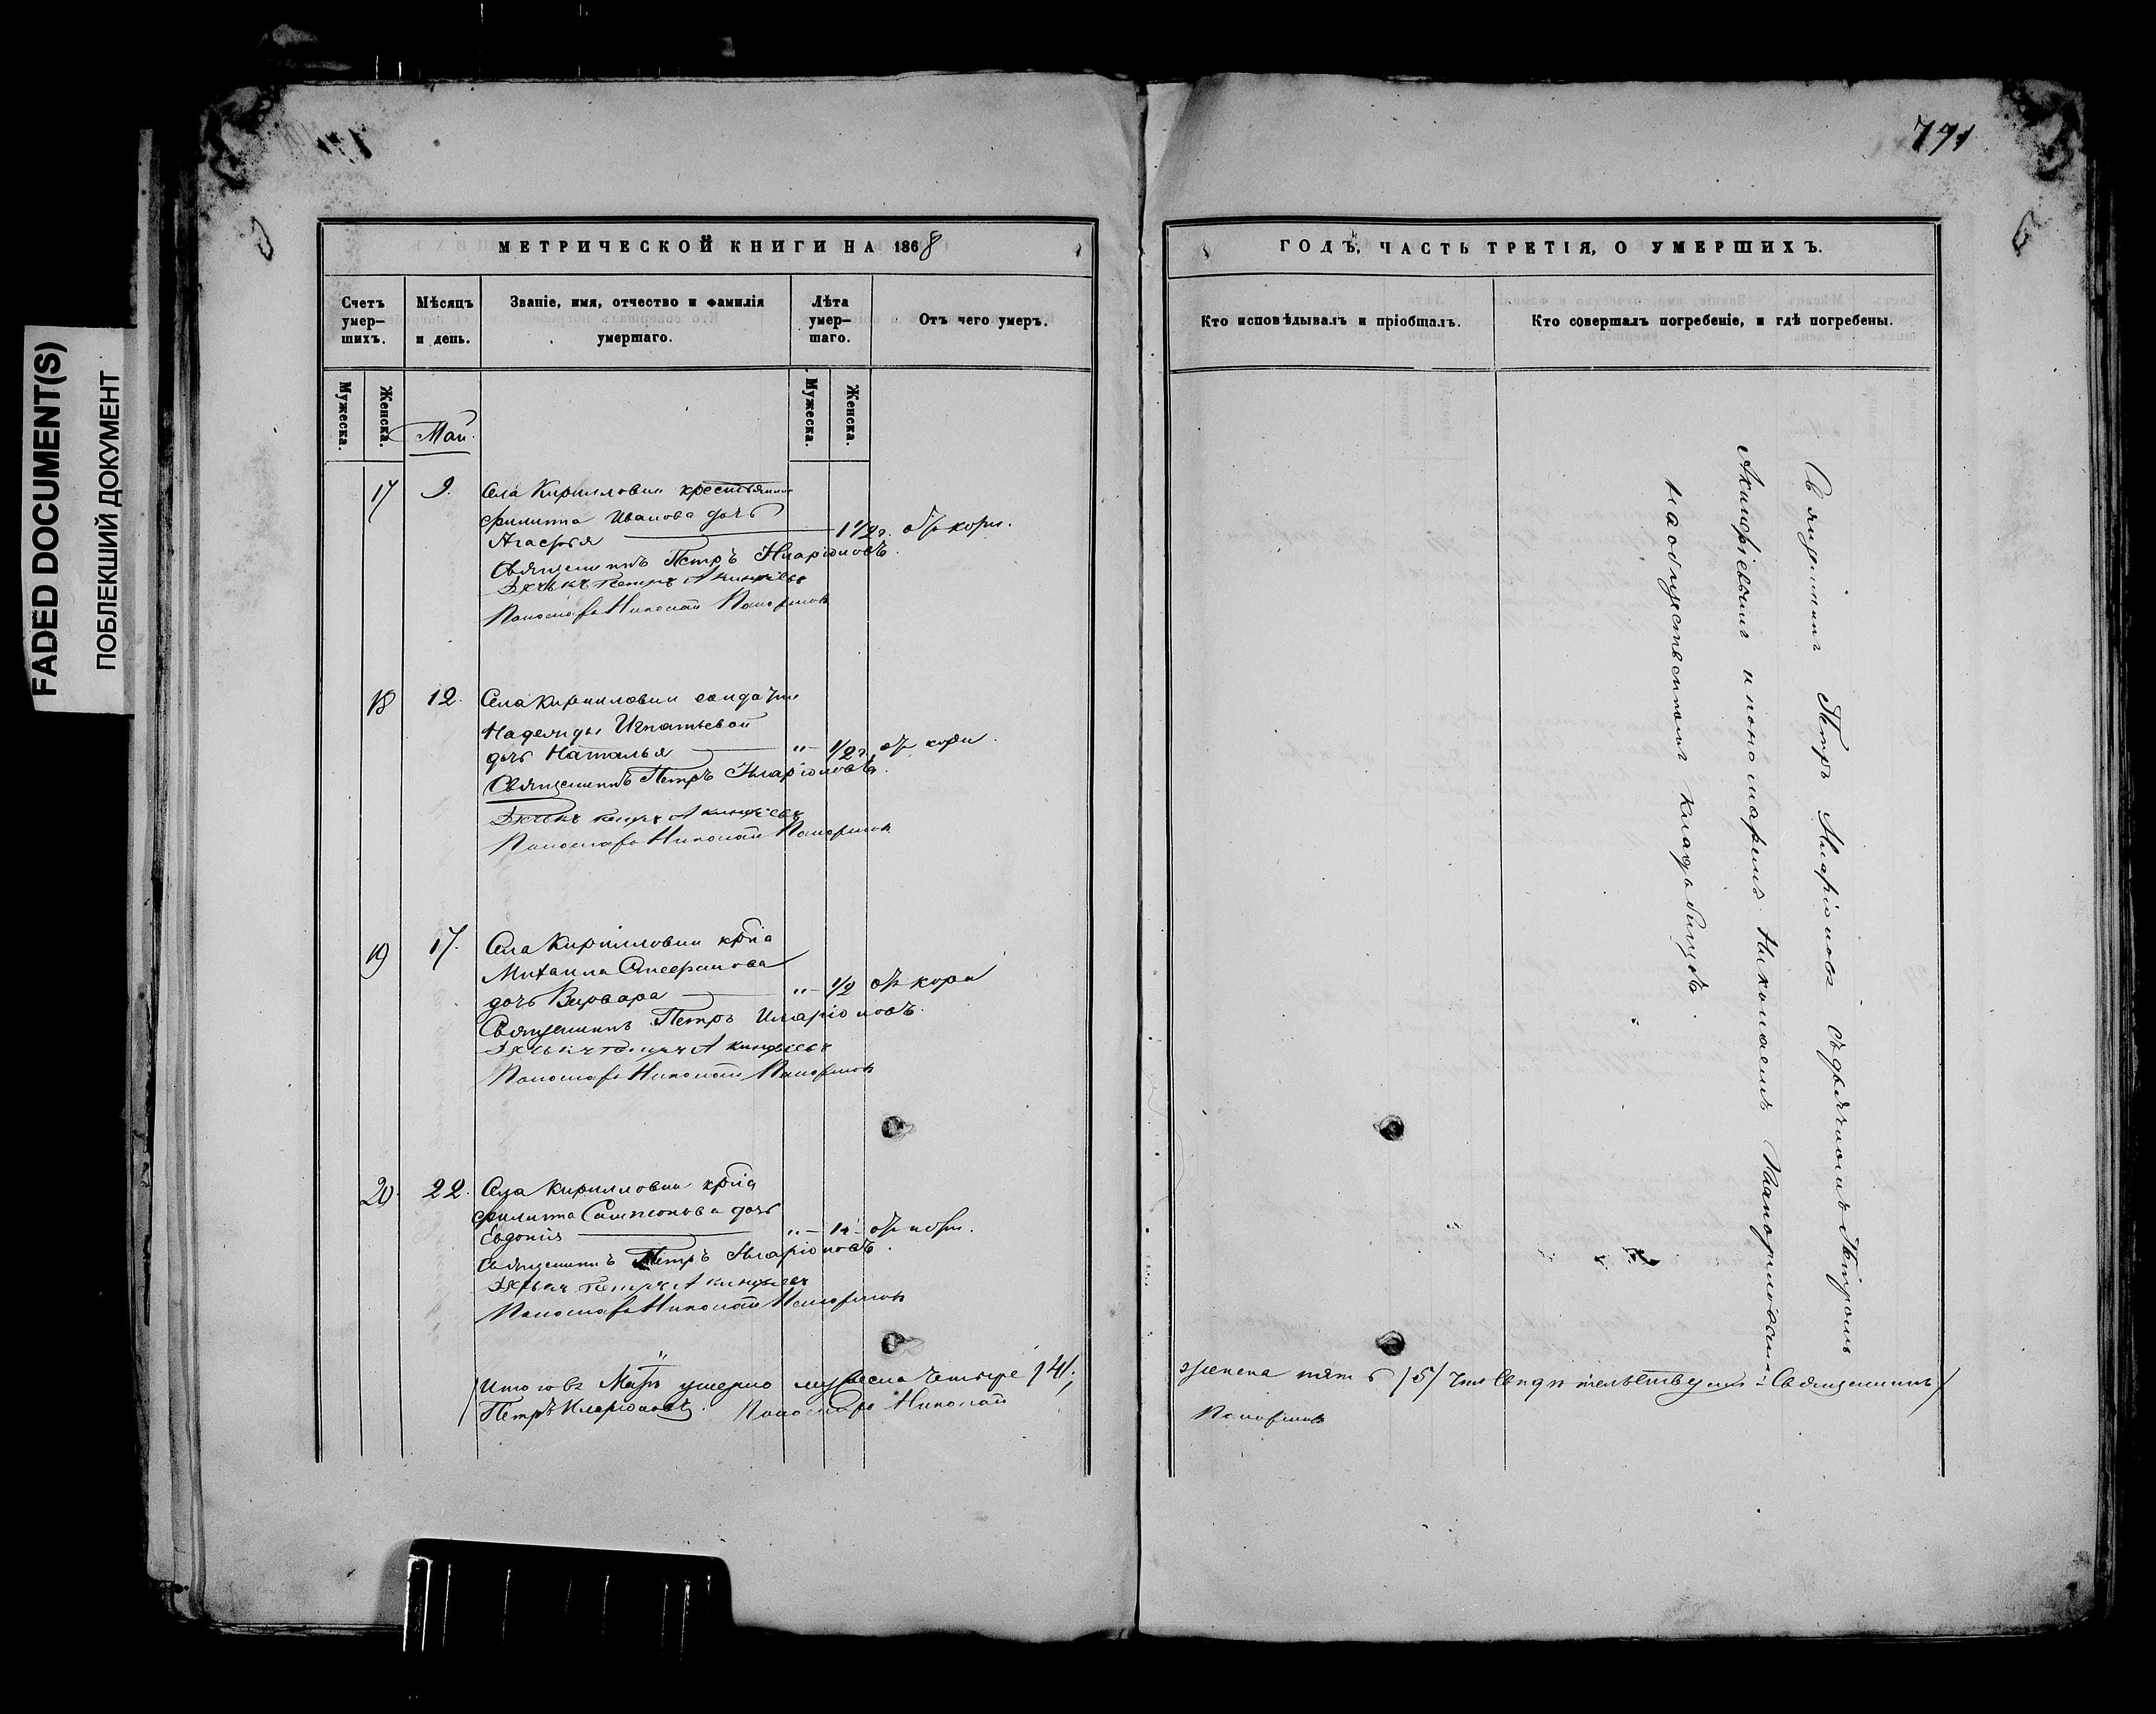 FADED DOCUMENT(S)
ПОБЛЕКШИЙ ДОКУМЕНТ
МЕТРИЧЕСКОЙ КНИГИ НА 1868
Счетъ умер-
шихъ.
Мѣсяцъ
и день.
Званіе, имя, отчество и фамилія
умершаго.
Лѣта
умер-
шаго.
Отъ чего умеръ.
Мужеска.
Женска.
Мужеска.
Женска.
Маи
17 9. Села Кириловки крестьянина
Филиппа Иванова дочь
Агафья 1 1/2 г. отъ кори.
Священникъ Петръ Иларіоновъ.
Дьячекъ Петръ Акинфіевъ
Пономарь Николай Напоринов
18 12. Села Кириловки солдатки
Надежды Игнатьевой
дочь Наталья " 1/2 г. отъ кори.
Священникъ Петръ Иларіоновъ.
Дьячекъ Петръ Акинфіевъ
Пономарь Николай
19 17. Села Кириловки кр-на
Михаила
дочь Варвара " 1/2 отъ кори
Священникъ Петръ Иларіоновъ.
Дьячекъ Петръ Акинфіевъ
Пономарь Николай
20. 22. Села Кириловки кр-на
Филиппа Сампсонова дочь
Евдокія " 1 г. отъ кори.
Священникъ Петръ Иларіоновъ.
Дьячекъ Петръ Акинфіевъ
Пономарь Николай
Итого въ Маѣ умерло мужеска четыре /4/,
Петръ Иларіоновъ. Пономарь Николай
771
ГОДЪ, ЧАСТЬ ТРЕТІЯ, О УМЕРШИХЪ.
Кто исповѣдывалъ и пріобщалъ.
Кто совершалъ погребеніе, и гдѣ погребены.
Священникъ Петръ Иларіоновъ съ дьячкомъ Петромъ
Акинфіевымъ и пономаремъ Николаемъ
на общественномъ кладбищѣ.
женска пять /5/ что свидѣтельствуемъ: Священникъ